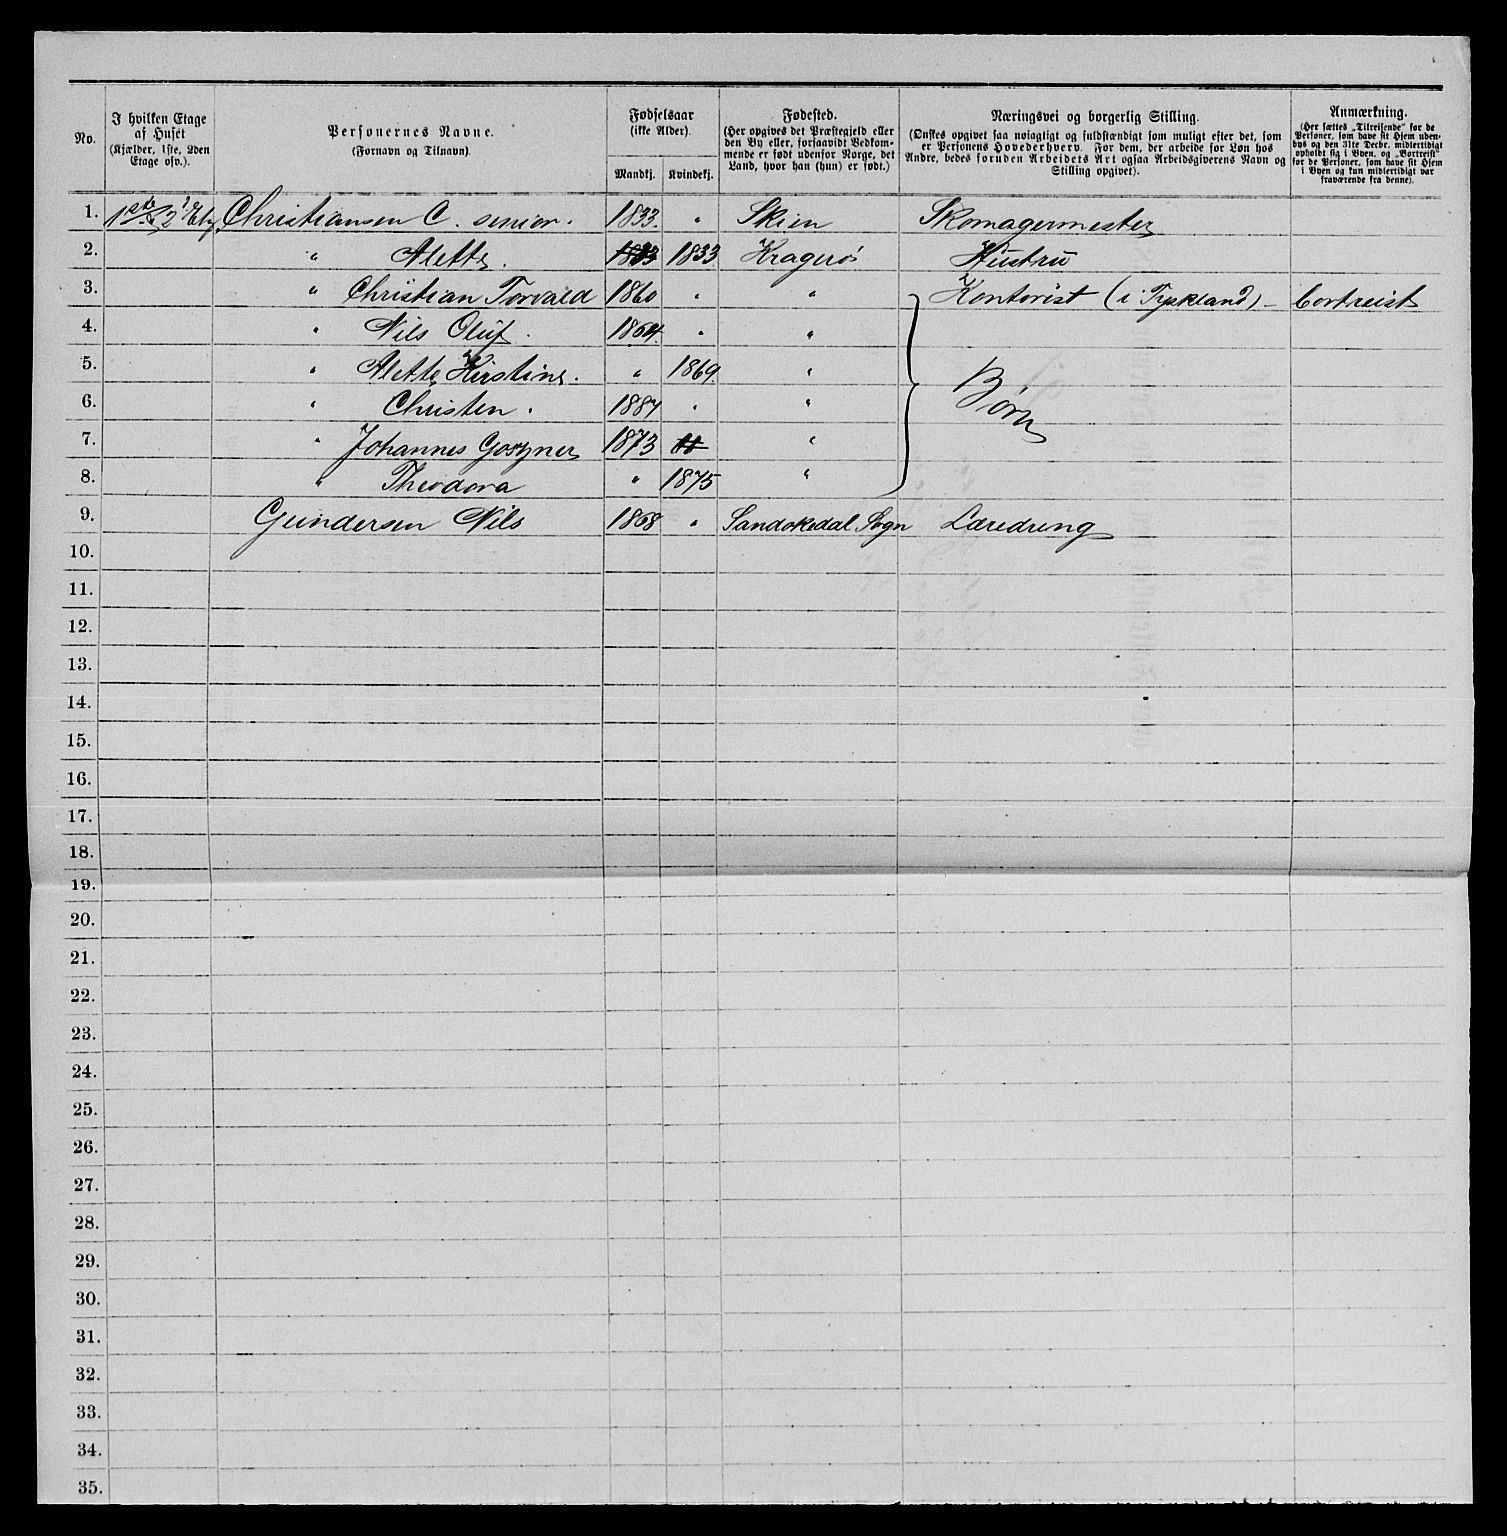 No. | I hvilken Etage af Huset (Kjælder, 1ste, 2den Etage osv.). | Personernes Navne. (Fornavn og Tilnavn). | Fødselsaar (ikke Alder). Mandkj. | Kvindekj. | Fødested. (Her opgives det Præstegjeld eller den By eller, forsaavidt Vedkommende er født udenfor Norge, det Land, hvor han (hun) er født.) | Næringsvei og borgerlig Stilling. (Ønskes opgivet saa nøiagtigt og fuldstændigt som muligt efter det, som er Personens Hovederhverv. For dem, der arbeide for Løn hos Andre, bedes foruden Arbeidets Art ogsaa Arbeidsgiverens Navn og Stilling opgivet). | Anmærkning. (Her sættes „Tilreisende“ for de Personer, som have sit Hjem udenbys og den 31te Decbr. midlertidigt opholdt sig i Byen, og „Bortreist“ for de Personer, som have sit Hjem i Byen og kun midlertidigt var fraværende fra denne).
1. | 1ste & 2' Etg. | Christiansen C. senior. | 1833. | " | Skien | Skomagermester
2. | " Alette. | 1833 | 1833 | Kragerö | Hustru
3. | " Christian Torvald | 1860 | " | " | Kontorist (i Tyskland) - | bortreist
4. | " Nils Oluf. | 1864. | " | "
5. | " Alette Kirstine. | " | 1869. | " | Börn
6. | " Christen. | 1887 | " | "
7. | " Johannes Goszner | 1873 | " | "
8. | " Theodora | " | 1875 | "
9. | Gundersen Nils | 1868 | " | Sandökedal Sogn | Læredreng
10.
11.
12.
13.
14.
15.
16.
17.
18.
19.
20.
21.
22.
23.
24.
25.
26.
27.
28.
29.
30.
31.
32.
33.
34.
35.